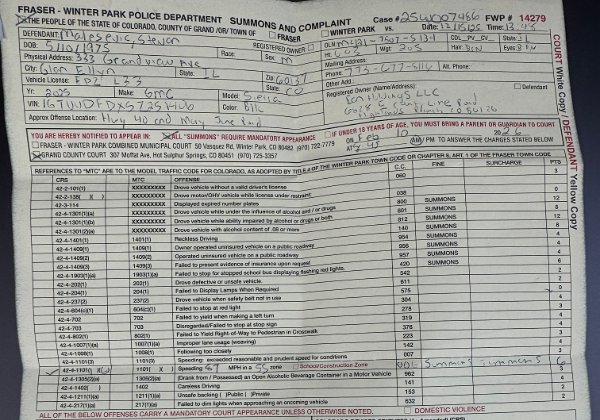 FRASER - WINTER PARK POLICE DEPARTMENT SUMMONS AND COMPLAINT Case# 25W007486 FWP # 14279
THE PEOPLE OF THE STATE OF COLORADO, COUNTY OF GRAND /OR/TOWN OF FRASER WINTER PARK Date: Time: 13:43
DEFENDANT: Malesevic, Stevan vs.
DOB: 5/10/1975 Race: Sex M Hgt. Wgt: 205 Hair: Eyes:
REGISTERED OWNER
Physical Address: 333 Grandview Ave Mailing Address:
City: Glen Ellyn State: IL Zip: 60137 Phone: 773-677-5116 Alt. Phone:
Vehicle License: State: CO Other Add.:
Yr. 2025 Make: GMC Model: Sierra Registered Owner (Name/Address):
VIN: Color:
Approx Offense Location: Hwy 40 and Mary Jane Road
YOU ARE HEREBY NOTIFIED TO APPEAR IN: ALL "SUMMONS" REQUIRE MANDATORY APPEARANCE IF UNDER 18 YEARS OF AGE, YOU MUST BRING A PARENT OR GUARDIAN TO COURT
FRASER - WINTER PARK COMBINED MUNICIPAL COURT 50 Vasquez Rd, Winter Park, CO 80482 (970) 722-7779
GRAND COUNTY COURT 307 Moffat Ave, Hot Sulphur Springs, CO 80451 (970) 725-3357
ON Feb 10 20 26 AM/PM TO ANSWER THE CHARGES STATED BELOW
REFERENCES TO "MTC" ARE TO THE MODEL TRAFFIC CODE FOR COLORADO, AS ADOPTED BY TITLE OF THE WINTER PARK TOWN CODE OR CHAPTER 8, ART. 1 OF THE FRASER TOWN CODE
CRS MTC OFFENSE C.C. FINE SURCHARGE PTS
42-2-101(1) XXXXXXXXX Drove vehicle without a valid driver's license 060 3
42-2-138( )( ) XXXXXXXXX Drove motor/OHV vehicle while license under restraint 038
42-3-114 XXXXXXXXX Displayed expired number plates
42-4-1301(1)(a) XXXXXXXXX Drove vehicle while under the influence of alcohol and / or drugs 800 SUMMONS 12
42-4-1301(1)(b) XXXXXXXXX Drove vehicle while ability impaired by alcohol or drugs or both 801 SUMMONS 8
42-4-1301(2)(a) XXXXXXXXX Drove vehicle with alcohol content of .08 or more 812 SUMMONS 12
42-4-1401(1) 1401(1) Reckless Driving 140 SUMMONS 8
42-4-1409(1) 1409(1) Owner operated uninsured vehicle on a public roadway 954 SUMMONS 4
42-4-1409(2) 1409(2) Operated uninsured vehicle on a public roadway 956 SUMMONS 4
42-4-1409(3) 1409(3) Failed to present evidence of insurance upon request 957 SUMMONS 4
42-4-1903(1)(a) 1903(1)(a) Failed to stop for stopped school bus displaying flashing red lights. 420 SUMMONS 6
42-4-202(1) 202(1) Drove defective or unsafe vehicle. 542 2
42-4-204(1) 204(1) Failed to Display Lamps When Required 611 2
42-4-237(2) 237(2) Drove vehicle when safety belt not in use 575 0
42-4-604(c)(1) 604(c)(1) Failed to stop at red light 304
42-4-702 702 Failed to yield when making a left turn 278 3
42-4-703 703 Disregarded/Failed to stop at stop sign 319
42-4-802(1) 802(1) Failed to Yield Right-of-Way to Pedestrian in Crosswalk 376 4
42-4-1007(1)(a) 1007(1)(a) Improper lane usage (weaving) 223 3
42-4-1008(1) 1008(1) Following too closely 142 4
42-4-1101(3) 1101(3) Speeding: exceeded reasonable and prudent speed for conditions 007
42-4-1101( )( ) 1101( )( ) Speeding: 87 MPH in a 55 zone School/Construction Zone Summons Summons 6
42-4-1305(2)(a) 1305(2)(a) (Drank from / Possessed) an Open Alcoholic Beverage Container in a Motor Vehicle 962
42-4-1402( ) 1402 Careless Driving 141 4
42-4-1211(1)(a) 1211(1)(a) Unsafe backing ( )Public ( )Private 153
42-4-217(1)(a) 217(1)(a) Failed to dim lights when approaching an oncoming vehicle 532 2
ALL OF THE BELOW OFFENSES CARRY A MANDATORY COURT APPEARANCE UNLESS OTHERWISE NOTED. DOMESTIC VIOLENCE
COURT White Copy
DEFENDANT Yellow Copy